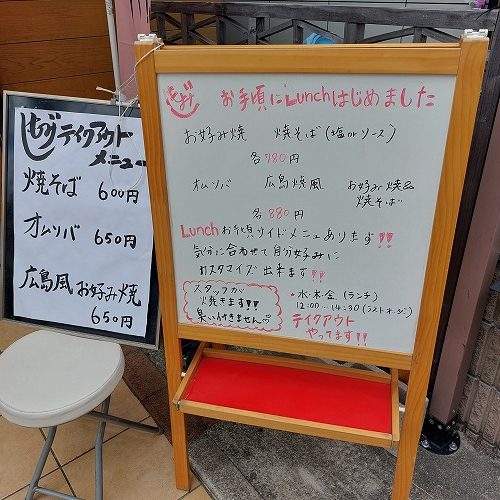 テイクアウト
メニュー
焼そば 600円
オムソバ 650円
広島風お好み焼
650円
お手頃にLunchはじめました
お好み焼 焼そば(塩orソース)
各780円
オムソバ 広島焼風 お好み焼&
焼そば
各880円
Lunchお手頃サイドメニューあります!!
気分に合わせて自分好みに
カスタマイズ出来ます!!
スタッフが
焼きます!!
臭い付きません
★水・木・金(ランチ)
12:00~14:30(ラストオーダー)
テイクアウト
やってます!!